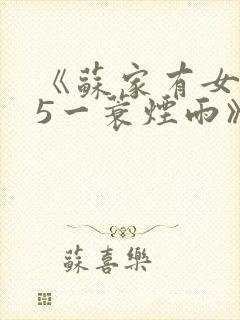 《蘇家有女
5一蓑煙雨》
蘇喜樂